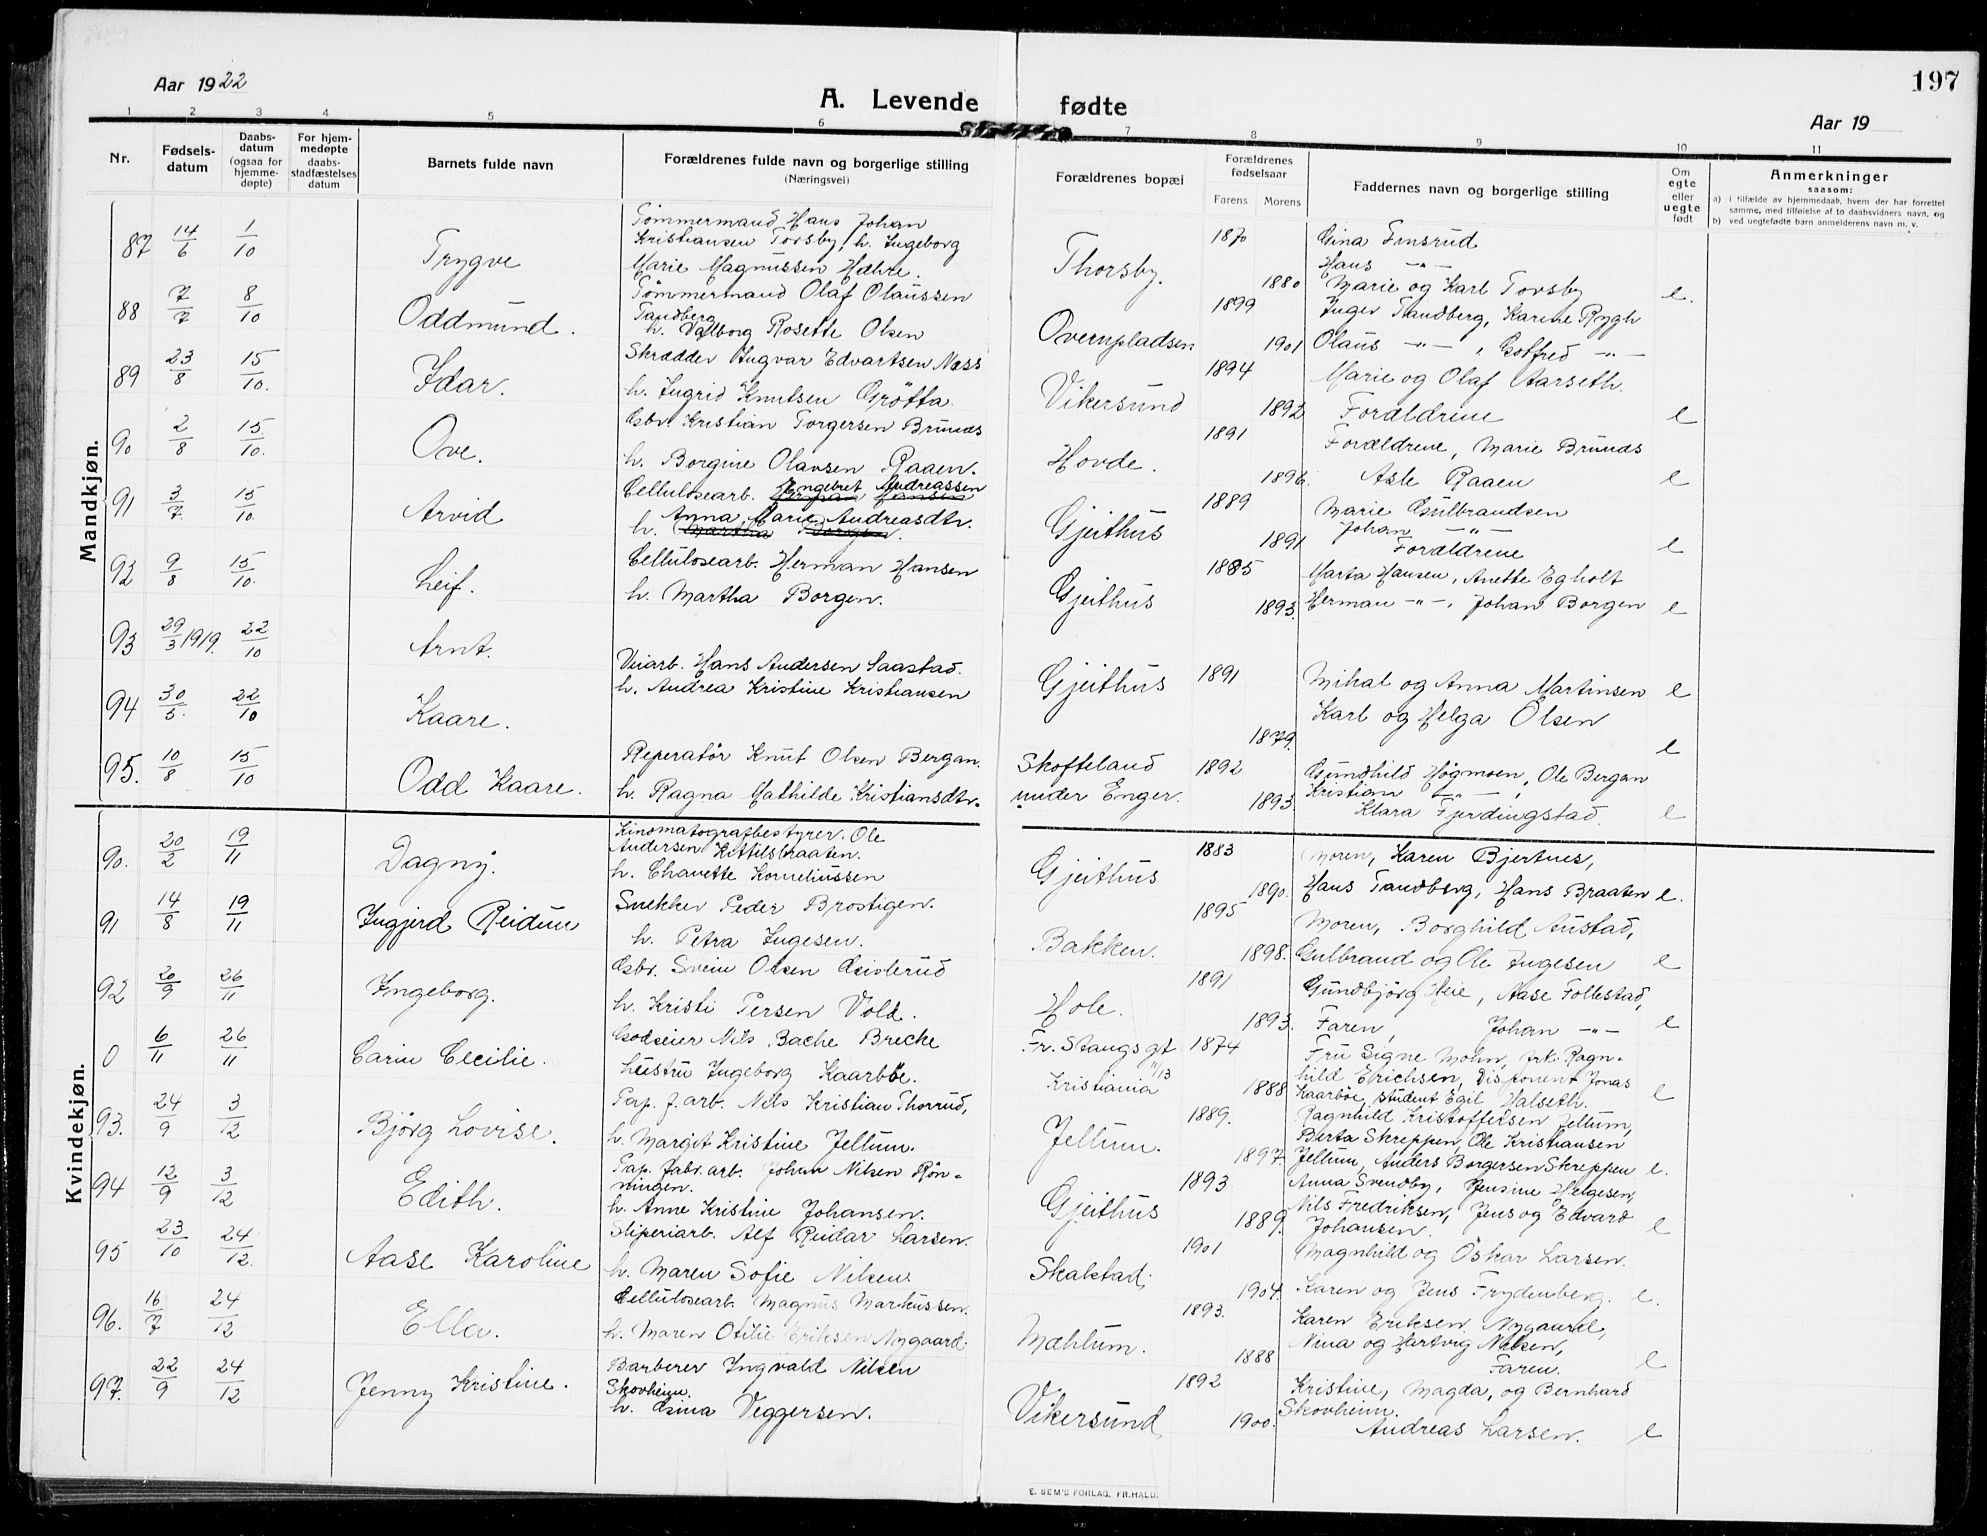 197
Aar 1922
A. Levende fødte
Aar 19
1 2 3 4 5 6 7 8 9 10 11
Nr.
Fødsels-
datum
Daabs-
datum
(ogsaa for
hjemme-
døpte)
For hjem-
medøpte
daabs-
stadfæstelses
datum
Barnets fulde navn
Forældrenes fulde navn og borgerlige stilling
(Næringsvei)
Forældrenes bopæl
Forældrenes
fødselsaar
Farens Morens
Faddernes navn og borgerlige stilling
Om
egte
eller
uegte
født
Anmerkninger
saasom:
a) i tilfælde av hjemmedaab, hvem der har forrettet
samme, med tilføielse af to daabsvidners navn, og
b) ved uegtefødte barn anmelderens navn m. v.
Mandkjøn.
87 14/6 1/10 Trygve
Tømmermand Hans Johan
Kristiansen Torsby, h. Ingeborg
Marie Magnussen Hæhre.
Thorsby. 1870 1880
Gina Finsrud
Hans -"-
Marie og Karl Torsby e.
88 7/7 8/10 Oddmund.
Tømmermand Olaf Olaussen
Tandberg
h. Valborg Rosette Olsen
Overnpladsen 1899 1901
Inger Tandberg, Karine Rygh
Olaus -"-, Gotfred -"-
89 23/8 15/10. Idar.
Skrædder Ingvar Edvartsen Næss
h. Ingrid Knutsen Grötta
Vikersund 1894 1892
Marie og Olaf Aarseth.
Forældrene e
90 2/8 15/10. Ove.
Gsbr. Kristian Torgersen Brunds
h. Borgine Olavsen Raaen.
Hovde. 1891 1896.
Forældrene, Marie Brunds
Asle Raaen e
91 3/7. 15/10. Arvid
Engebret Andreassen
Cellulosearb. Herman Hansen
Anna Marie Andreasdtr.
h. Martha Borgen.
Gjeithus 1889 1891
Marie Gulbrandsen
Johan -"-
Forældrene e
92 9/8 15/10. Leif.
Cellulosearb. Herman Hansen
h. Martha Borgen.
Gjeithus 1885 1893.
Marta Hansen, Anette Egholt
Herman -"-, Johan Borgen e
93 29/3 1919. 22/10 Arnt.
Veiarb. Hans Andersen Saastad.
h. Andrea Kristine Kristiansen
Gjeithus 1891 1879.
Mihal og Anna Martinsen e
Karl og Helga Olsen
94 30/5. 22/10 Kaare.
e
95. 10/8 15/10 Odd Kaare.
Reperatør Knut Olsen Bergan.
h. Ragna Mathilde Kristiansdtr.
Skofteland
under Enger. 1892 1893
Gundhild Høgmoen, Ole Bergan
Kristian -"-,
Klara Fjerdingstad. e
Kvindekjøn.
90. 20/2 19/11 Dagny.
Kinomatografbestyrer. Ole
Andersen Kittilsbraaten.
h. Chanette Korneliussen
Gjeithus 1883 1890.
Moren, Karen Bjertnes,
Hans Tandberg, Hans Braaten e.
91 14/8 19/11 Ingjerd Reidun
Snekker Peder Brostigen.
h. Petra Ingesen.
Bakken. 1895 1898.
Moren, Borghild Austad,
Gulbrand og Ole Ingesen e
92 20/9 26/11 Ingeborg.
Gsbr. Svein Olsen Gislerud
h. Kristi Persen Vold.
Hole. 1891 1893.
Gundbjörg Heie, Aase Follestad,
Faren, Johan -"- e
0 6/11 26/11 Carin Cecilie.
Godseier Nils Bache Brecke
hustru Ingeborg Kaarböe.
Fr. Stangs gt
11/13
Kristiania 1874 1888
Fru Signe Mohn, frk. Ragn-
hild Erichsen, Disponent Jonas
Kaarböe, student Egil Halseth. e
93. 24/9 3/12 Bjørg Lovise.
Pap. f. arb. Nils Kristian Thorrud,
h. Margit Kristine Jellum.
Jellum. 1889. 1897.
Ragnhild Kristoffersen Jellum,
Berta Skreppen, Ole Kristiansen
Jellum, Anders Borgersen Skreppen e.
94 12/9 3/12 Edith.
Pap. fabr. arb. Johan Nilsen Røn-
ningen.
h. Anne Kristine Johansen.
Gjeithus 1893 1889.
Anna Svendby, Jensine Helgesen,
Nils Fredriksen, Jens og Edvard
Johansen. e
95 23/10 24/12. Aase Karoline
Sliperiarb. Alf Reidar Larsen.
h. Maren Sofie Nilsen.
Skalstad. 1901 1904.
Magnhild og Oskar Larsen.
Karen og Jens Frydenberg. e.
96. 16/7 24/12 Ella.
Cellulosearb. Magnus Markussen.
h. Maren Otilie Eriksen Nygaard.
Mæhlum. 1893. 1888
Karen Eriksen Nygaard,
Nina og Hartvig Nilsen,
Faren. e
97. 22/9 24/12 Jenny Kristine.
Barberer Ingvald Nilsen
Skovheim.
h. Gina Veggersen.
Vikersund 1892 1900.
Kristine, Magda, og Bernhard
Skovheim.
Andreas Larsen. e
E. SEM'S FORLAG, FR.HALD.